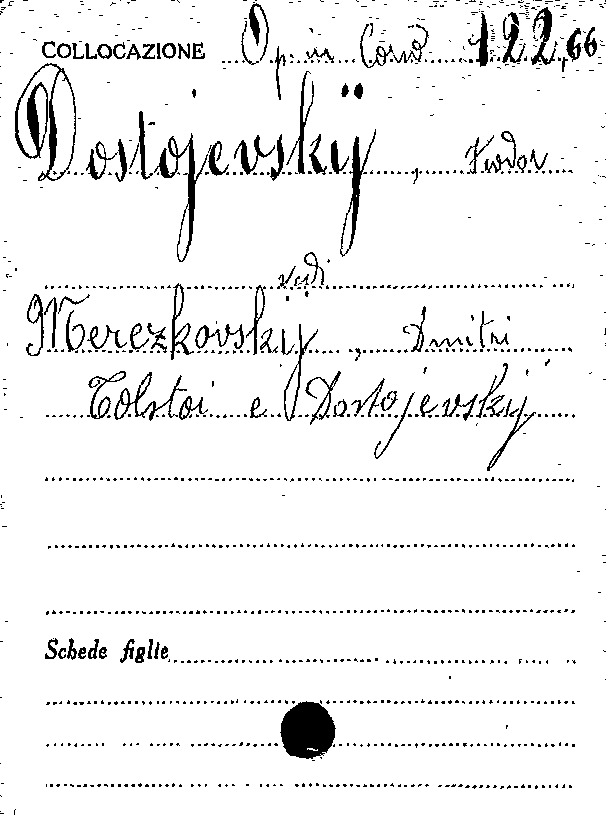 COLLOCAZIONE Op. in Cons 122,66
Dostojevskÿ, Fiodor
vedi
Merezkovskij, Dmitri
Tolstoi e Dostojevskij
Schede figlie